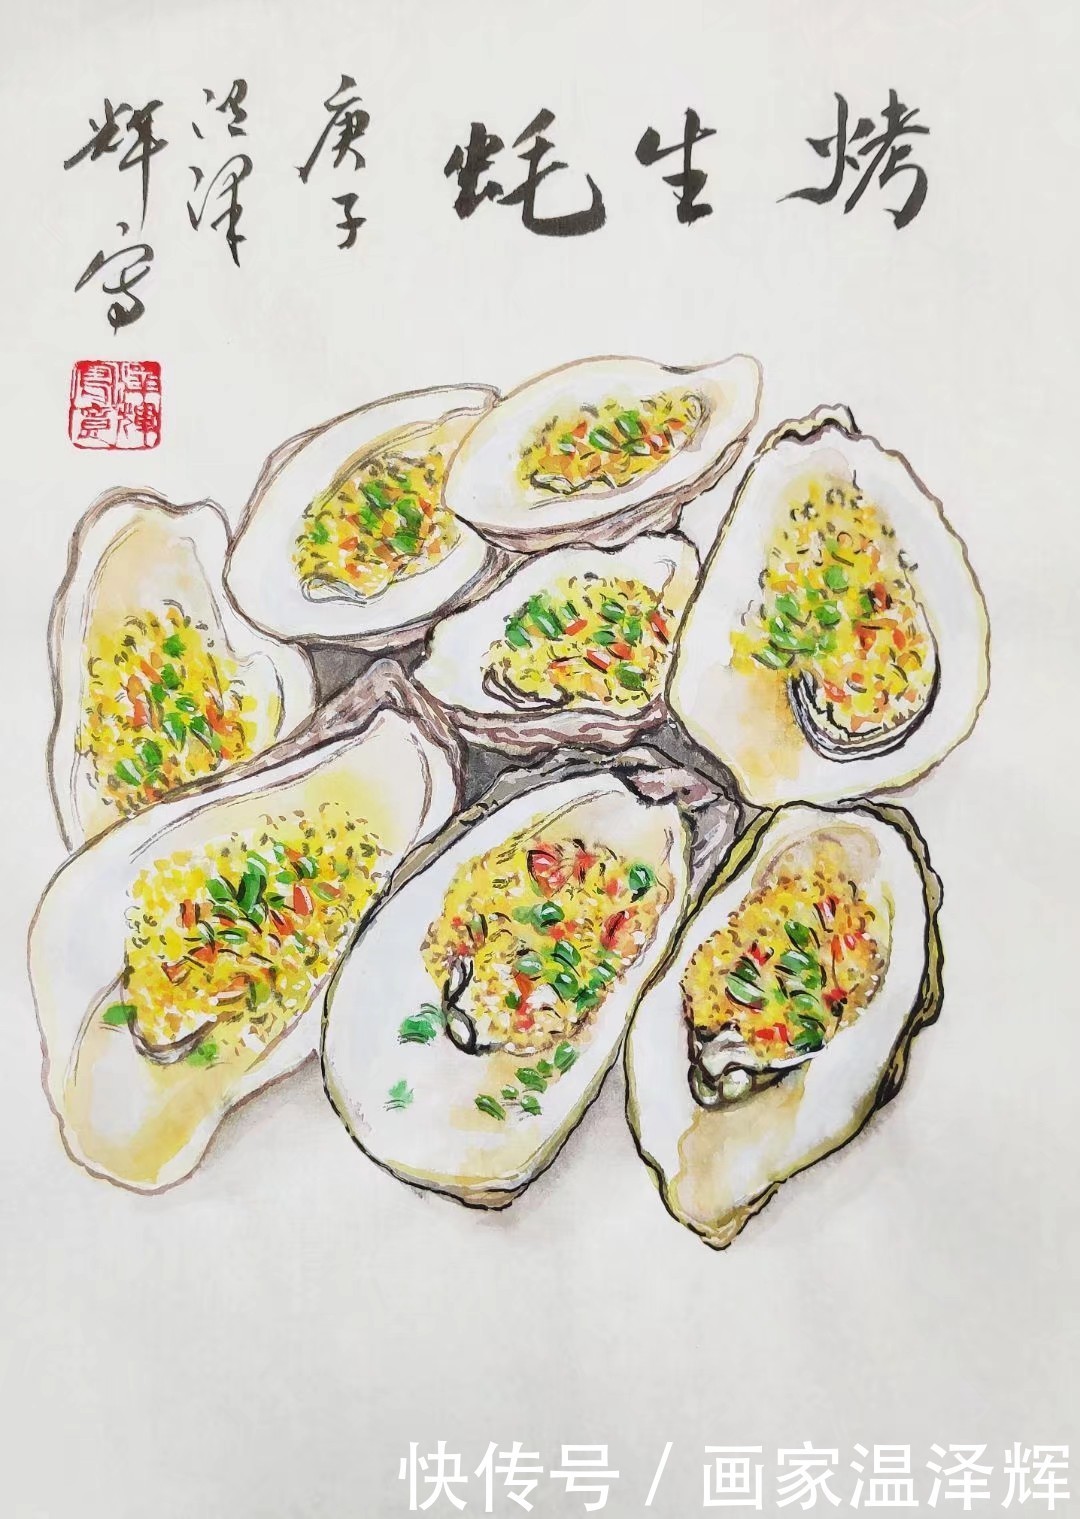 烤生蚝
庚子
温泽
辉写
快传号 / 画家温泽辉